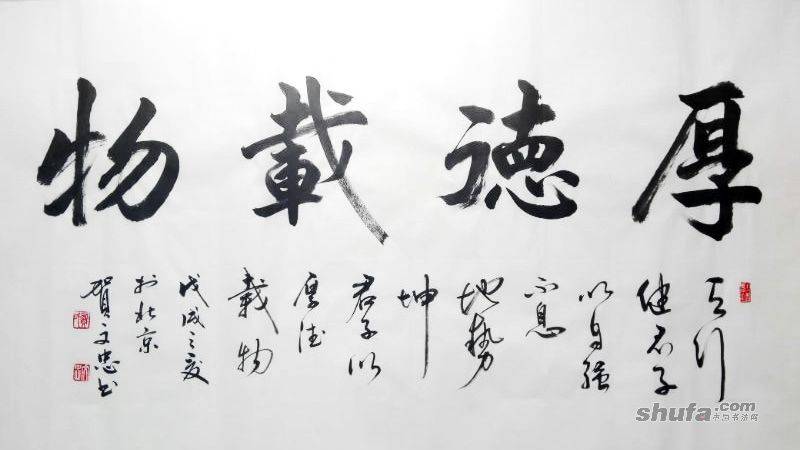 厚德載物
天行
健君子
以自強
不息
地勢
坤
君子以
厚德
載物
戊戌之夏
於北京
賀文忠书
shufa.com